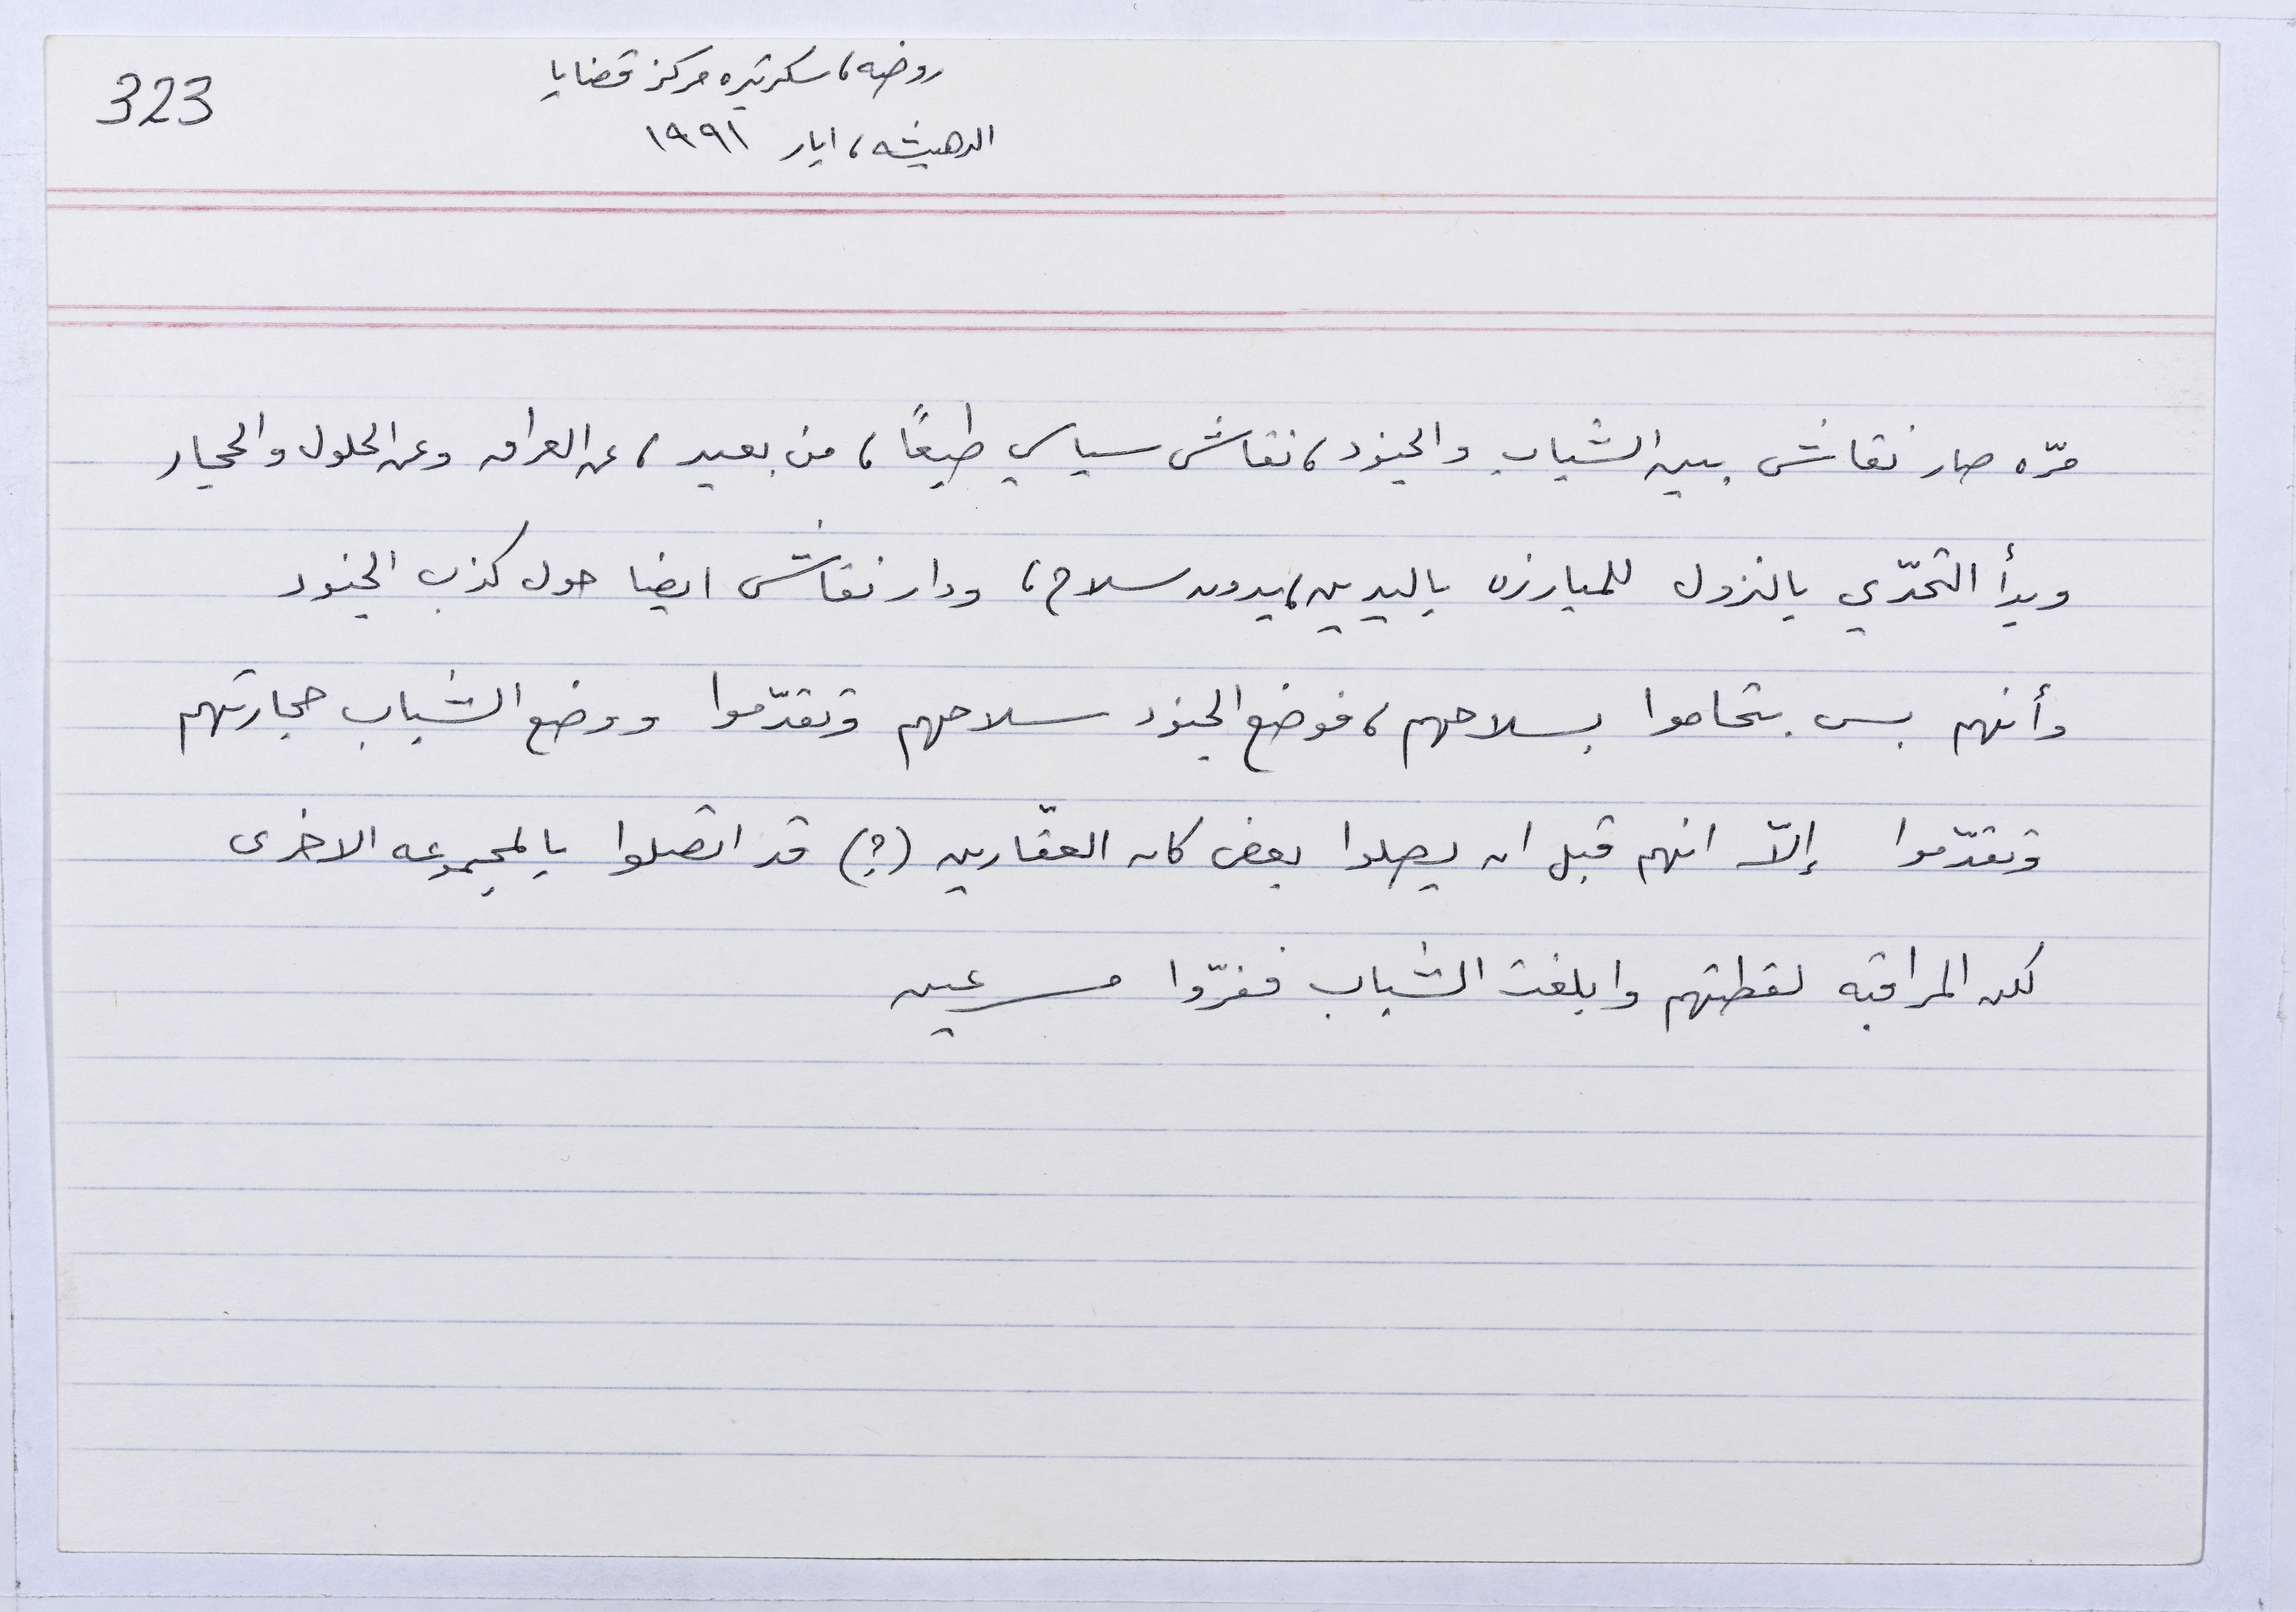 323
روضه، سكرتيره مركز قضايا
الدهيشه، ايار ١٩٩١
مرّه صار نقاش بين الشباب والجنود، نقاش سياسي طبعًا، من بعيد، عن العراق وعن الحلول والحجار
وبدأ التحدّي بالنزول للمبارزه باليدين، بدون سلاح، ودار نقاش ايضا حول كذب الجنود
وأنهم بس بتحاموا بسلاحهم، فوضع الجنود سلاحهم وتقدّموا ووضع الشباب حجارتهم
وتقدّموا إلّا انهم قبل ان يصلوا بعض كان العقّارين (؟) قد اتصلوا بالمجموعه الاخرى
لكن المراقبه لقطتهم وابلغت الشباب ففرّوا مسرعين